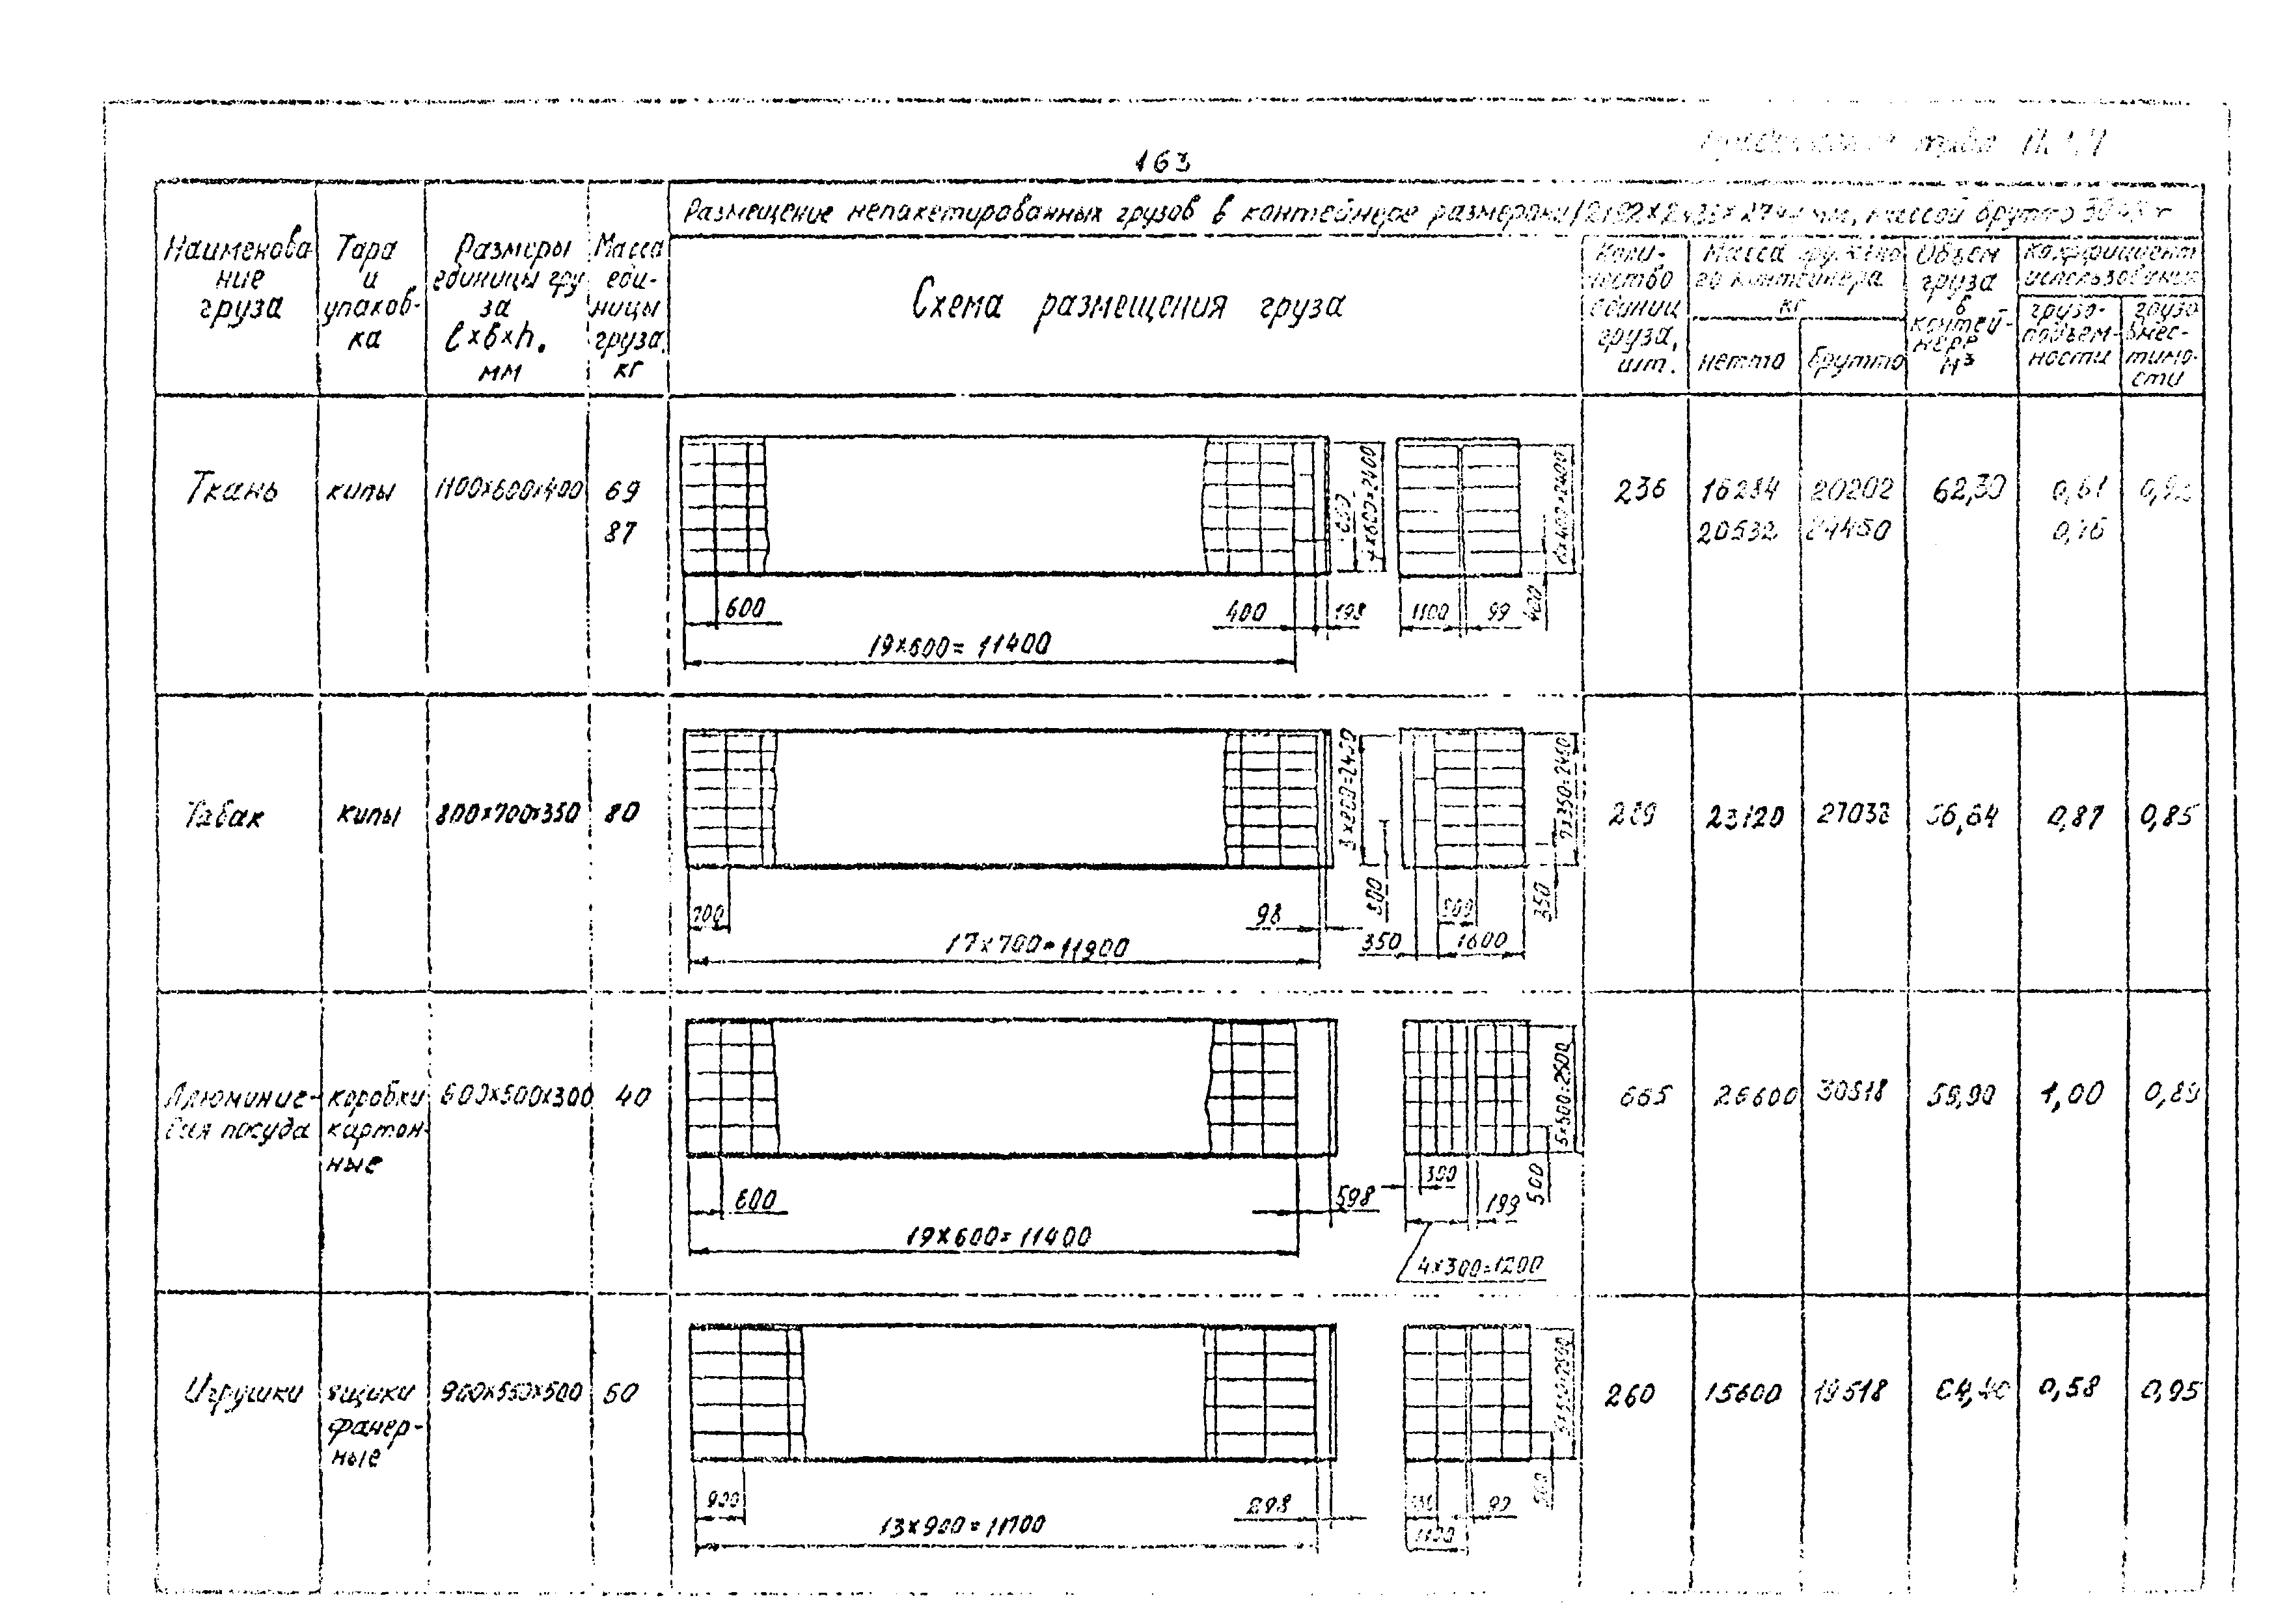 163
Размещение непакетированных грузов в контейнере размерами массой брутто
Наименова
ние
груза
Тара
и
упаков-
ка
Размеры
единицы гру
за
l×b×h,
мм
Масса
еди-
ницы
груза,
кг
Схема размещения груза
Коли-
чество
единиц
груза,
шт.
Масса гружено
го контейнера
кг
нетто
брутто
Объем
груза
в
контей-
нере
м³
Коэффициент
использования
грузо-
подъем-
ности
грузо
вмес-
тимо-
сти
Ткань
кипы
1100×600×400
69
87
600
19×600=11400
400
198
600
4×600=2400
1100
99
400
6×400=2400
236
16284
20202
62,30
0,61
20532
24450
0,76
Табак
кипы
800×700×350
80
700
17×700=11900
98
3×800=2400
800
350
800
1600
350
7×350=2450
289
23120
27038
56,64
0,87
0,85
Алюминие-
вая посуда
коробки
картон-
ные
600×500×300
40
600
19×600=11400
598
300
199
4×300=1200
500
5×500=2500
665
26600
30518
59,90
1,00
0,89
Игрушки
ящики
фанер-
ные
900×550×500
60
900
13×900=11700
298
1100
99
500
5×500=2500
260
15600
19518
64,40
0,58
0,95